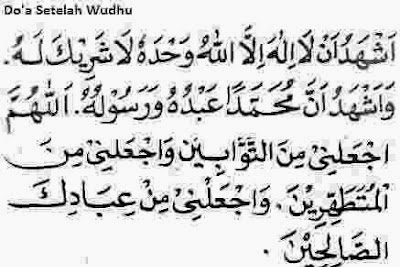 Do'a Setelah Wudhu
اَشْهَدُ اَنْ لَا اِلٰهَ اِلَّا اللهُ وَحْدَهُ لَا شَرِيْكَ لَهُ.
وَاَشْهَدُ اَنَّ مُحَمَّدًا عَبْدُهُ وَرَسُوْلُهُ. اَللّٰهُمَّ
اجْعَلْنِيْ مِنَ التَّوَّابِيْنَ وَاجْعَلْنِيْ مِنَ
الْمُتَطَهِّرِيْنَ. وَاجْعَلْنِيْ مِنْ عِبَادِكَ
الصَّالِحِيْنَ.